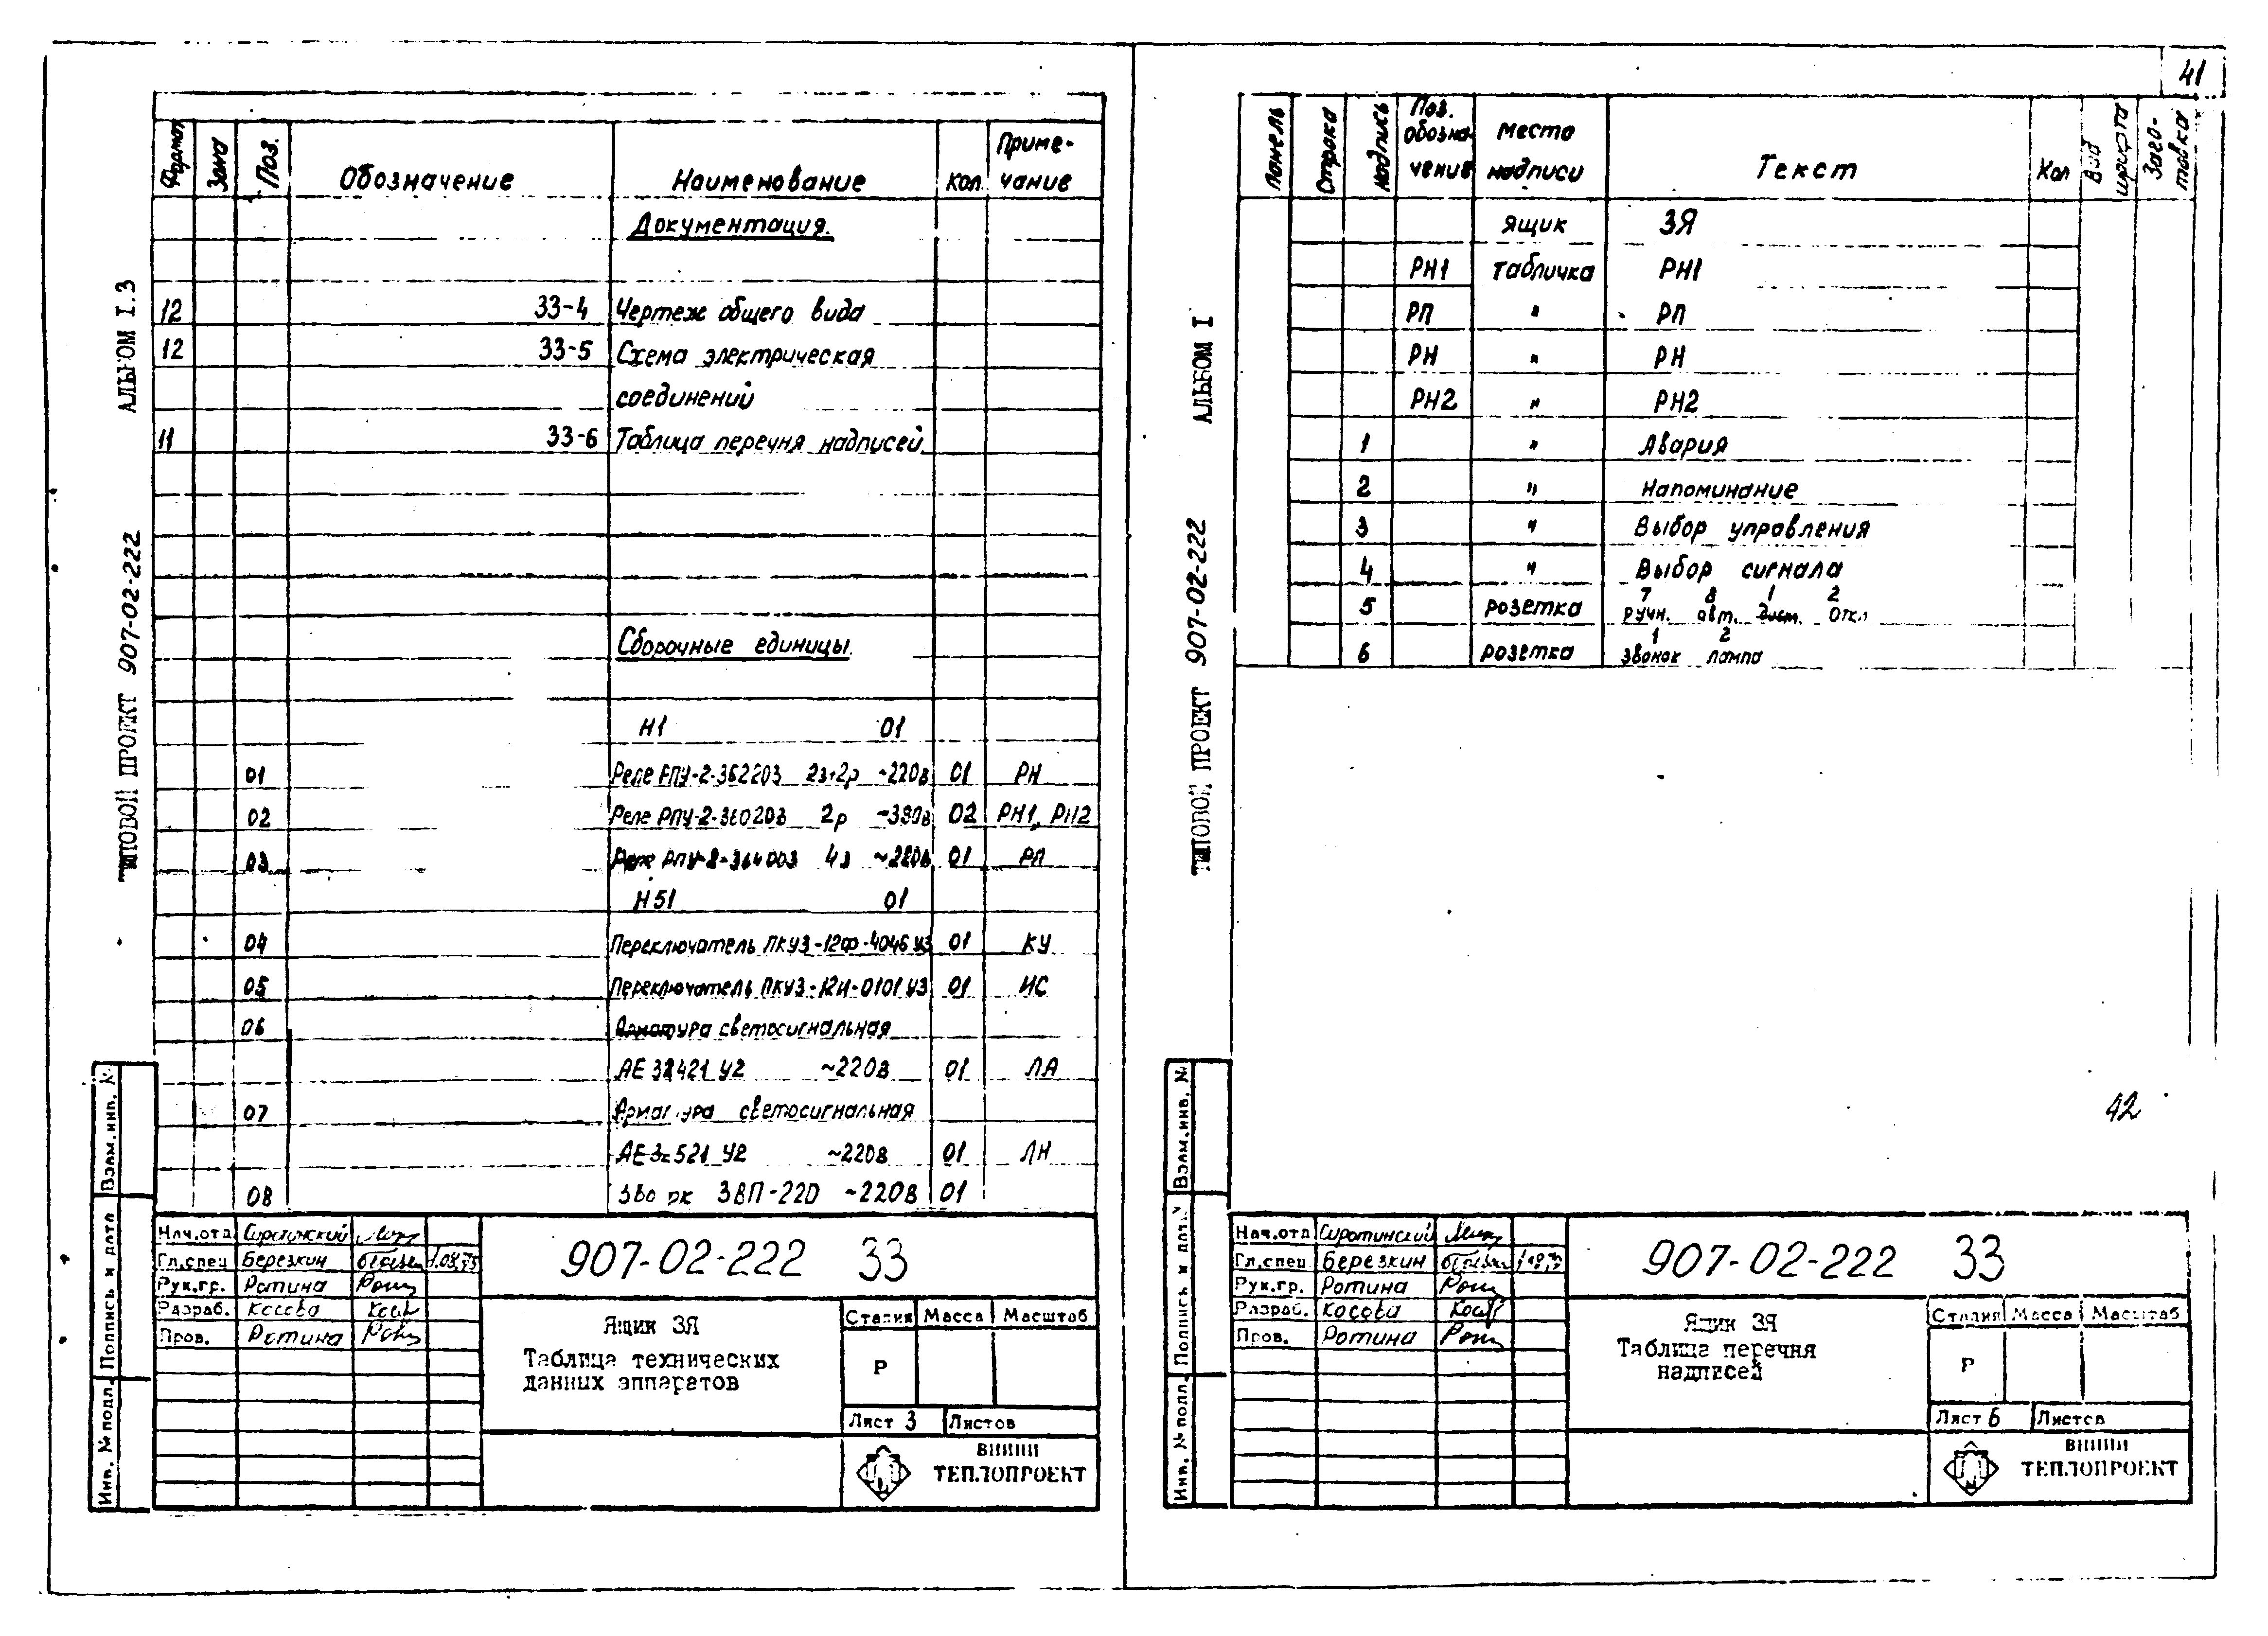 41
АЛЬБОМ I.3
ТИПОВОЙ ПРОЕКТ 907-02-222
Формат Зона Поз. Обозначение Наименование Кол. Приме-
чание
Документация.
12 33-4 Чертеж общего вида
12 33-5 Схема электрическая
соединений
11 33-6 Таблица перечня надписей
Сборочные единицы.
Н1 01
01 Реле РПУ-2-362203 2з+2р ~220в 01 РН
02 Реле РПУ-2-360203 2р ~380в 02 РН1, РН2
03 Реле РПУ-2-364003 4з ~220в 01 РП
Н51 01
04 Переключатель ПКУ3-12Ф-4046 У3 01 КУ
05 Переключатель ПКУ3-12И-0101 У3 01 ИС
06 Арматура светосигнальная
АЕ 32421 У2 ~220в 01 ЛА
07 Арматура светосигнальная
521 У2 ~220в 01 ЛН
08 ЗВП-220 ~220в 01
Взам.инв. №
Подпись и дата
Инв. № подл.
Нач.отд Сиротинский
Гл.спец Березкин
Рук.гр. Ротина
Разраб. Косова
Пров. Ротина
907-02-222 33
Ящик 3Я
Таблица технических
данных аппаратов
Стадия Масса Масштаб
Р
Лист 3 Листов
ВНИПИ
ТЕПЛОПРОЕКТ
АЛЬБОМ I
ТИПОВОЙ ПРОЕКТ 907-02-222
Панель Строка Надпись Поз. обозна-
чение Место
надписи Текст Кол Вид
шрифта Заго-
товка
Ящик 3Я
РН1 Табличка РН1
РП " РП
РН " РН
РН2 " РН2
1 " Авария
2 " Напоминание
3 " Выбор управления
4 " Выбор сигнала
7 8 1 2
5 розетка ручн. авт. дист. откл
1 2
6 розетка звонок лампа
42
Взам.инв. №
Подпись и дата
Инв. № подл.
Нач.отд Сиротинский
Гл.спец Березкин
Рук.гр. Ротина
Разраб. Косова
Пров. Ротина
907-02-222 33
Ящик 3Я
Таблица перечня
надписей
Стадия Масса Масштаб
Р
Лист 6 Листов
ВНИПИ
ТЕПЛОПРОЕКТ